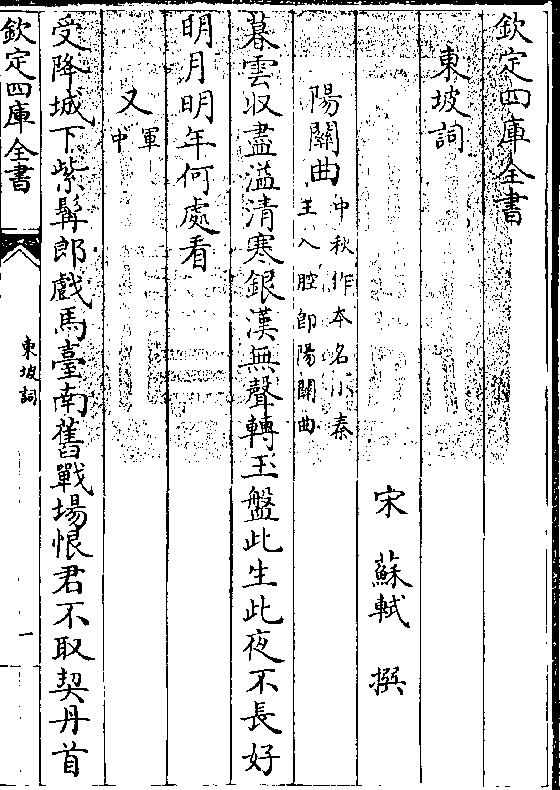 欽定四庫全書
東坡詞
宋　蘇軾　撰
陽關曲中秋作本名小秦
王入腔即陽關曲
暮雲収盡溢清寒銀漢無聲轉玉盤此生此夜不長好
明月明年何處看
又軍
中
受降城下紫髯郎戲馬臺南舊戰場恨君不取契丹首
欽定四庫全書
東坡詞
一